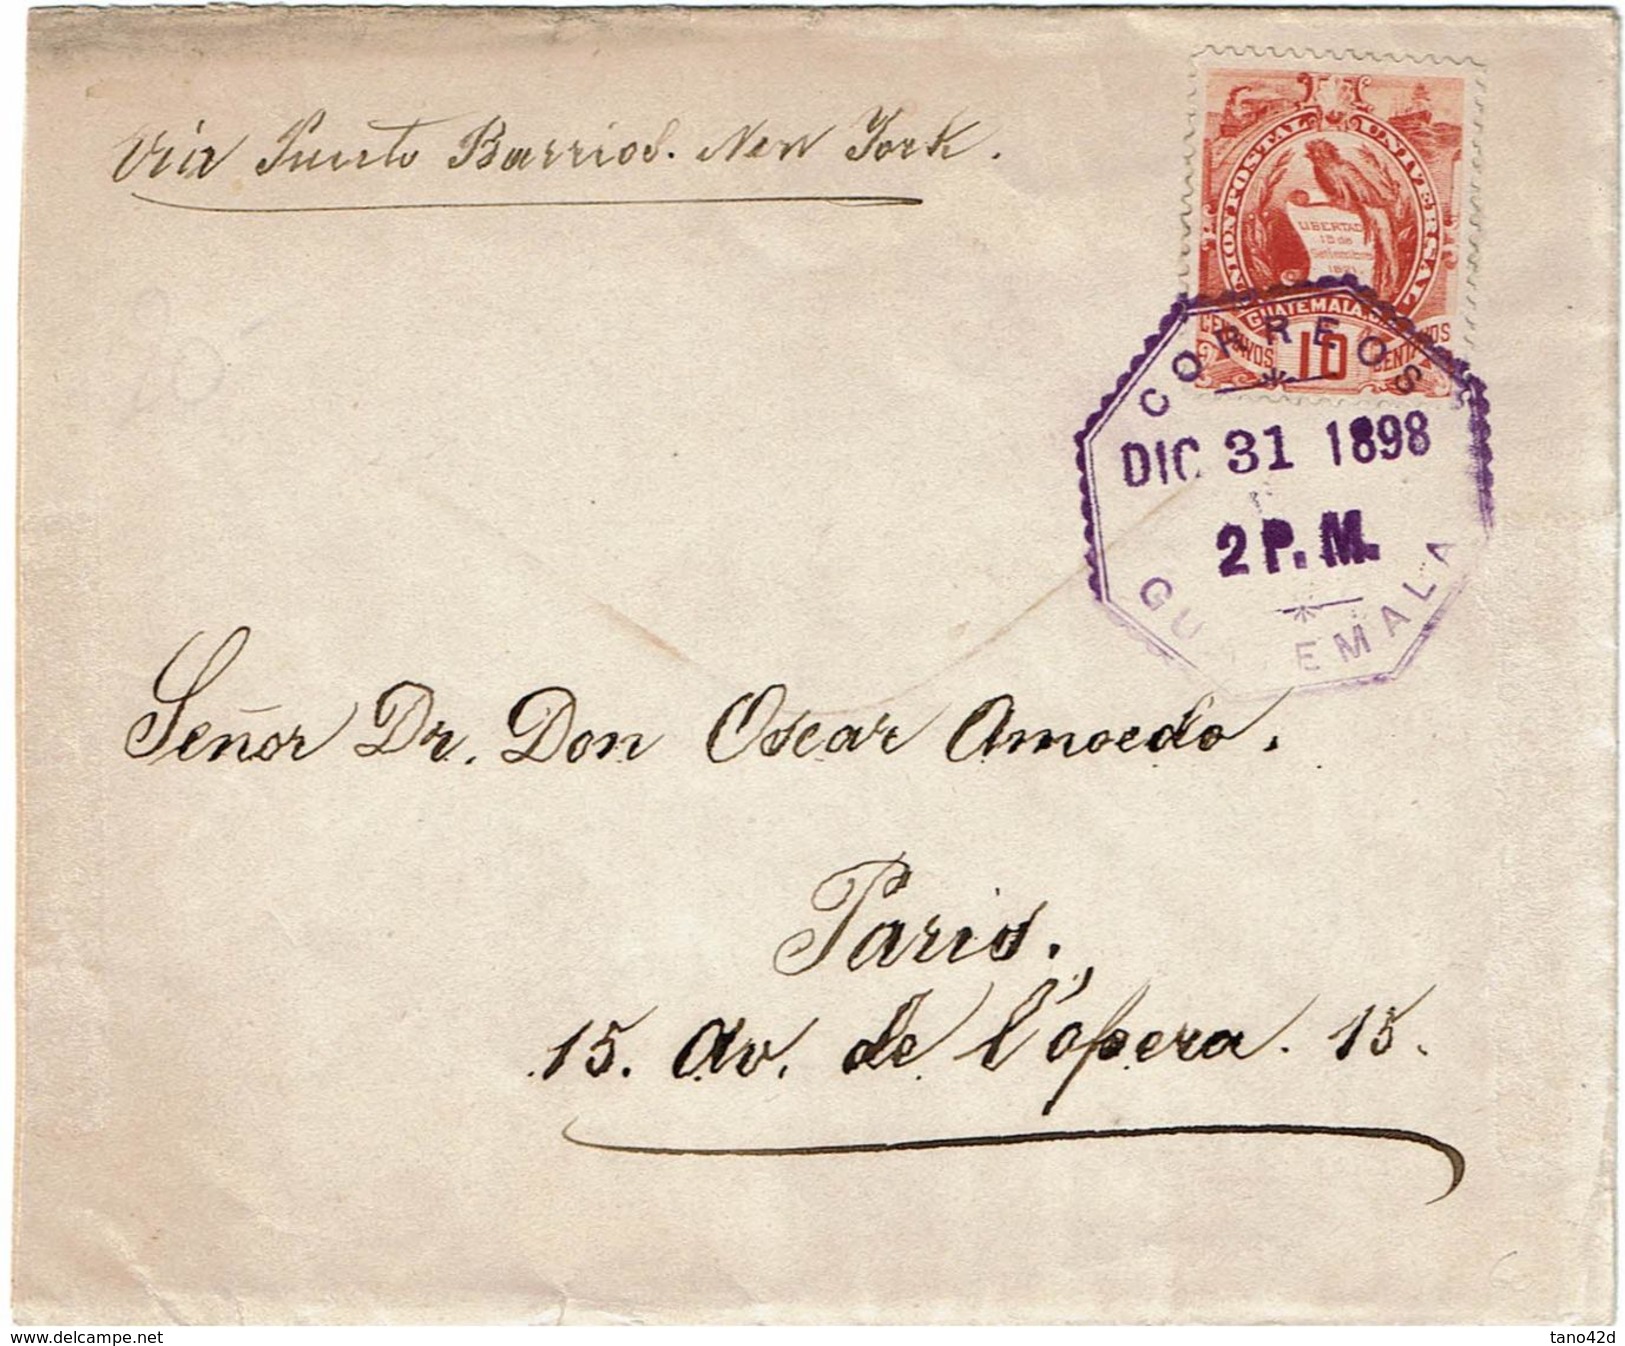 Via Puerto Barrios. New York.
UNION POSTAL UNIVERSAL
LIBERTAD
15 de
Setiembre
GUATEMALA
CENTAVOS 10 CENTAVOS
CORREOS
DIC 31 1898
2 P.M.
GU EMALA
Señor Dr. Don Oscar Amoedo.
Paris.
15. Av. de l'opera. 15.
www.delcampe.net
tano42d